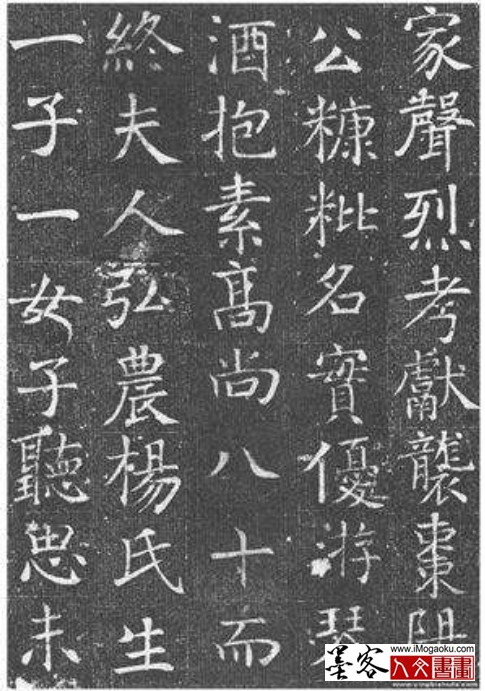 家聲烈考獻襲棗陽
公糠粃名實優游琴
酒抱素高尚八十而
終夫人弘農楊氏生
一子一女子聽思未
墨客
www.iMogaoku.com
人文書畫